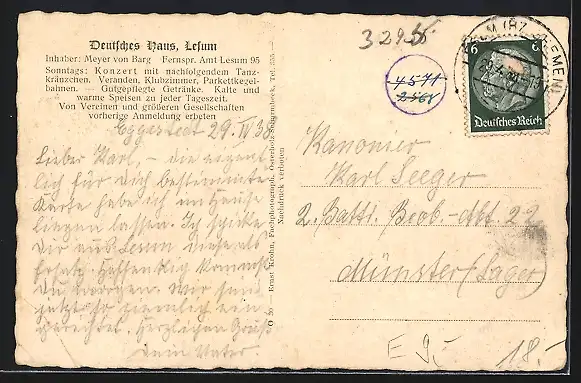 Deutsches Haus, Lesum
Inhaber: Meyer von Barg Fernspr. Amt Lesum 95
Sonntags: Konzert mit nachfolgendem Tanz-
kränzchen. Veranden. Klubzimmer, Parkettkegel-
bahnen. — Gutgepflegte Getränke. Kalte und
warme Speisen zu jeder Tageszeit.
Von Vereinen und größeren Gesellschaften
vorherige Anmeldung erbeten
Eggestedt 29. IV 38
Lieber Karl, – die eigent-
lich für Dich bestimmte
Karte habe ich im Hause
liegen lassen. Ich schicke
Dir aus Lesum diese als
Ersatz. Hoffentlich kommst
Du morgen. Wir sind
jetzt hier ziemlich ein-
geregnet. Herzlichen Gruß
Dein Vater.
O 20 — Ernst Krohn, Fachphotograph, Osterholz-Scharmbeck, Tel. 355 —
Nachdruck verboten
32955
4571
2561
6 6
Deutsches Reich
29.4.38
Kanonier
Karl Seeger
2. Battr. Beob.-Abt 22
Münster (Lager)
E 9,-
18.-